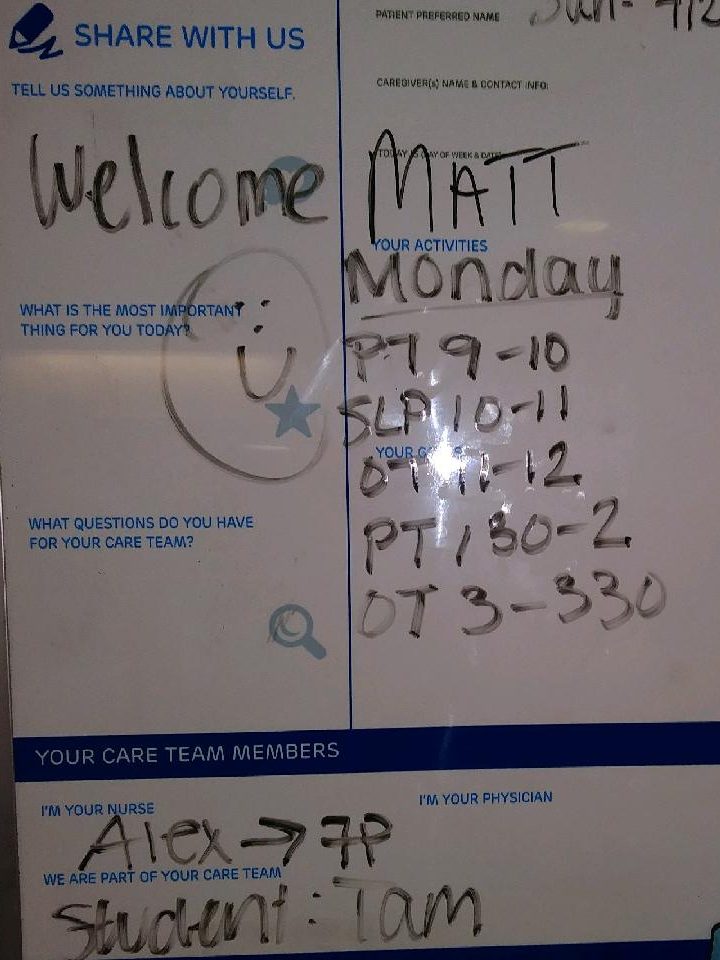 SHARE WITH US
TELL US SOMETHING ABOUT YOURSELF.
Welcome
WHAT IS THE MOST IMPORTANT
THING FOR YOU TODAY?
WHAT QUESTIONS DO YOU HAVE
FOR YOUR CARE TEAM?
PATIENT PREFERRED NAME
CAREGIVER(s) NAME & CONTACT INFO:
MATT
YOUR ACTIVITIES
Monday
PT 9-10
SLP 10-11
YOUR
OT 11-12
PT 130-2
OT 3-330
YOUR CARE TEAM MEMBERS
I'M YOUR NURSE
Alex → 7P
I'M YOUR PHYSICIAN
WE ARE PART OF YOUR CARE TEAM
Student: Tam